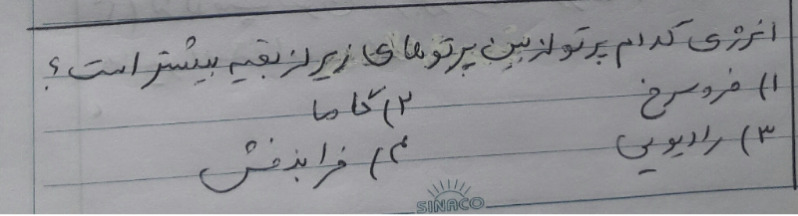 انرژی کدام پرتو از بین پرتوهای زیر از بقیه بیشتر است؟
۱) فروسرخ ۲) گاما
۳) رادیویی ۴) فرابنفش
SINACO